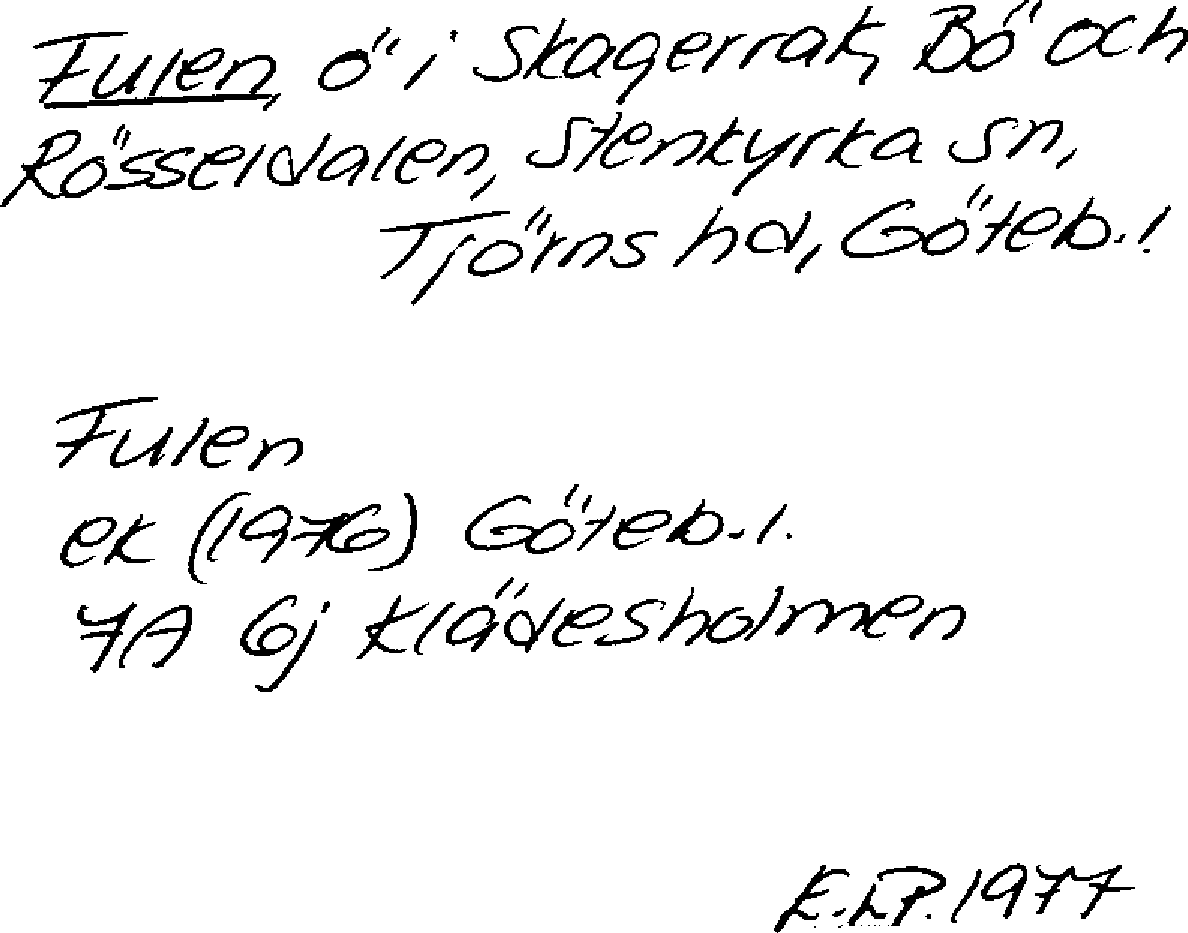 Fulen, ö i Skagerrak, Bö och
Rösseldalen, Stenkyrka sn,
Tjörns hd, Göteb. l
Fulen
ek (1976) Göteb. l.
7A 6j Klädesholmen
E.LP. 1977